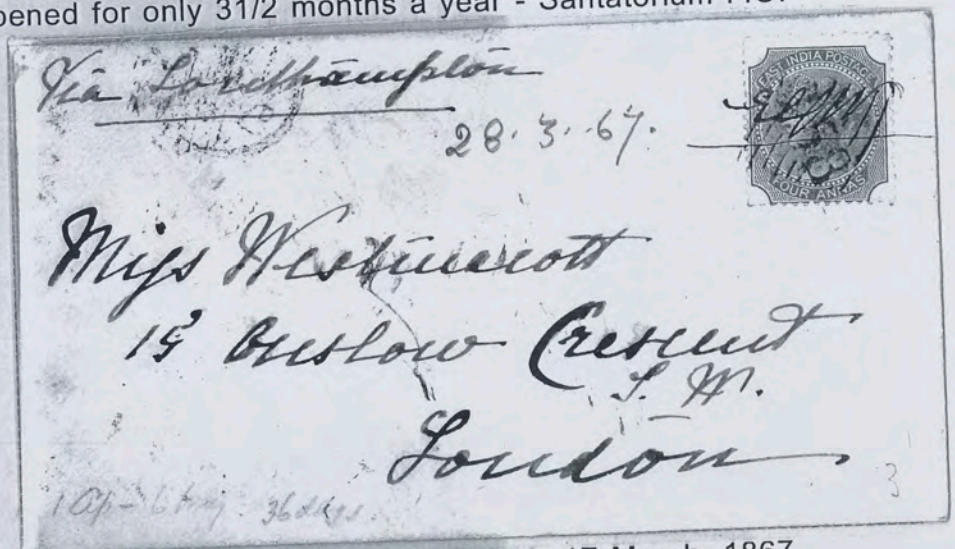 pened for only 31/2 months a year - Sanitatorium
Via Southampton
28.3.67.
EAST INDIA POSTAGE
FOUR ANNAS
Miss Westmacott
15 Onslow Crescent
S. W.
London
36 days.
3
March 1867